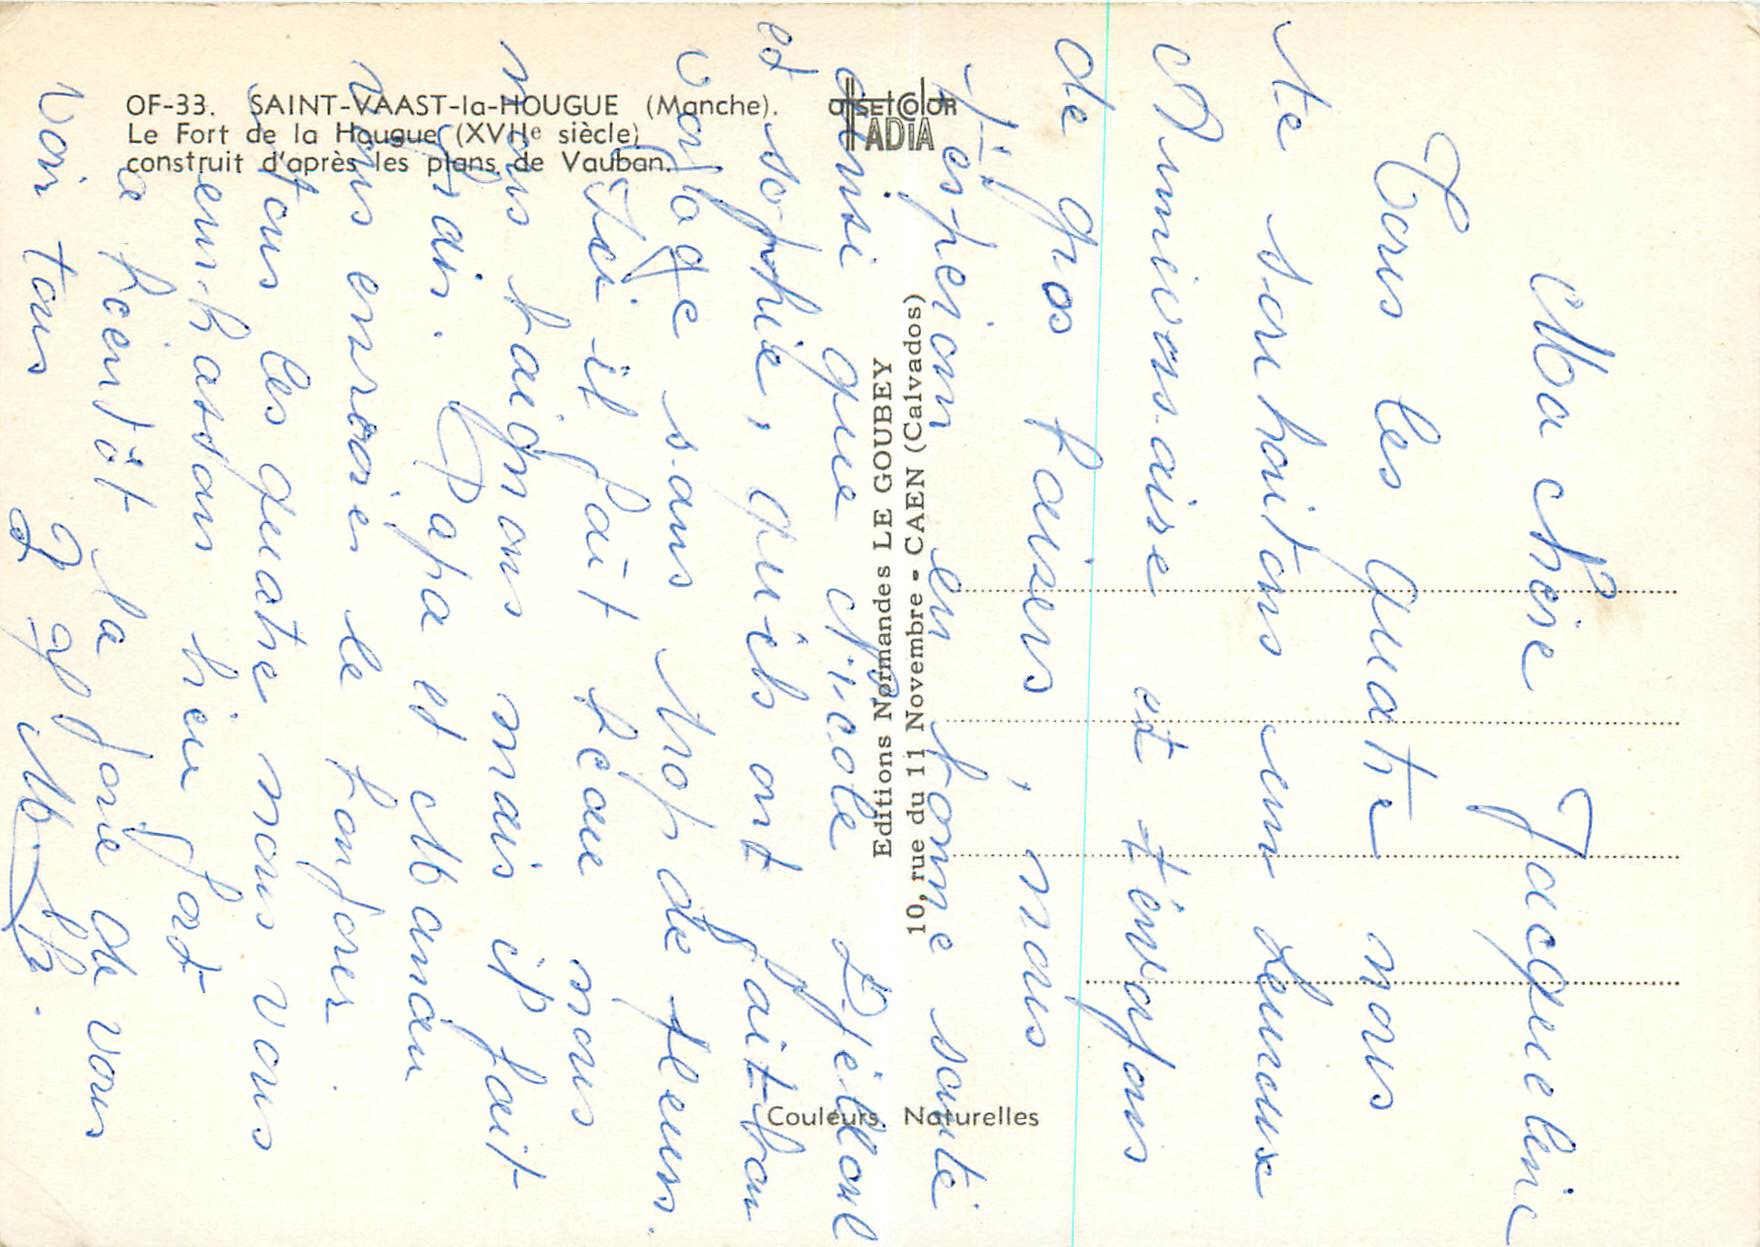 OF-33. SAINT-VAAST-la-HOUGUE (Manche).
Le Fort de la Hougue (XVIIe siècle)
construit d'après les plans de Vauban.
OFFSET COLOR
IADIA
Editions Normandes LE GOUBEY
10, rue du 11 Novembre - CAEN (Calvados)
Couleurs Naturelles
Ma chère Jacqueline
Tous les quatre nous
te souhaitons un heureux
Anniversaire et t'envoyons
de gros baisers, nous
t'espérons en bonne santé
ainsi que Nicole Djelloul
et Sophie, qu'ils ont fait bon
voyage sans trop de
Ici il fait beau nous
nous baignons mais il fait
frais. Papa et Maman
vous envoie le bonjour.
tous les quatre nous vous
embrassons bien fort
a bientôt la joie de vous
voir tous